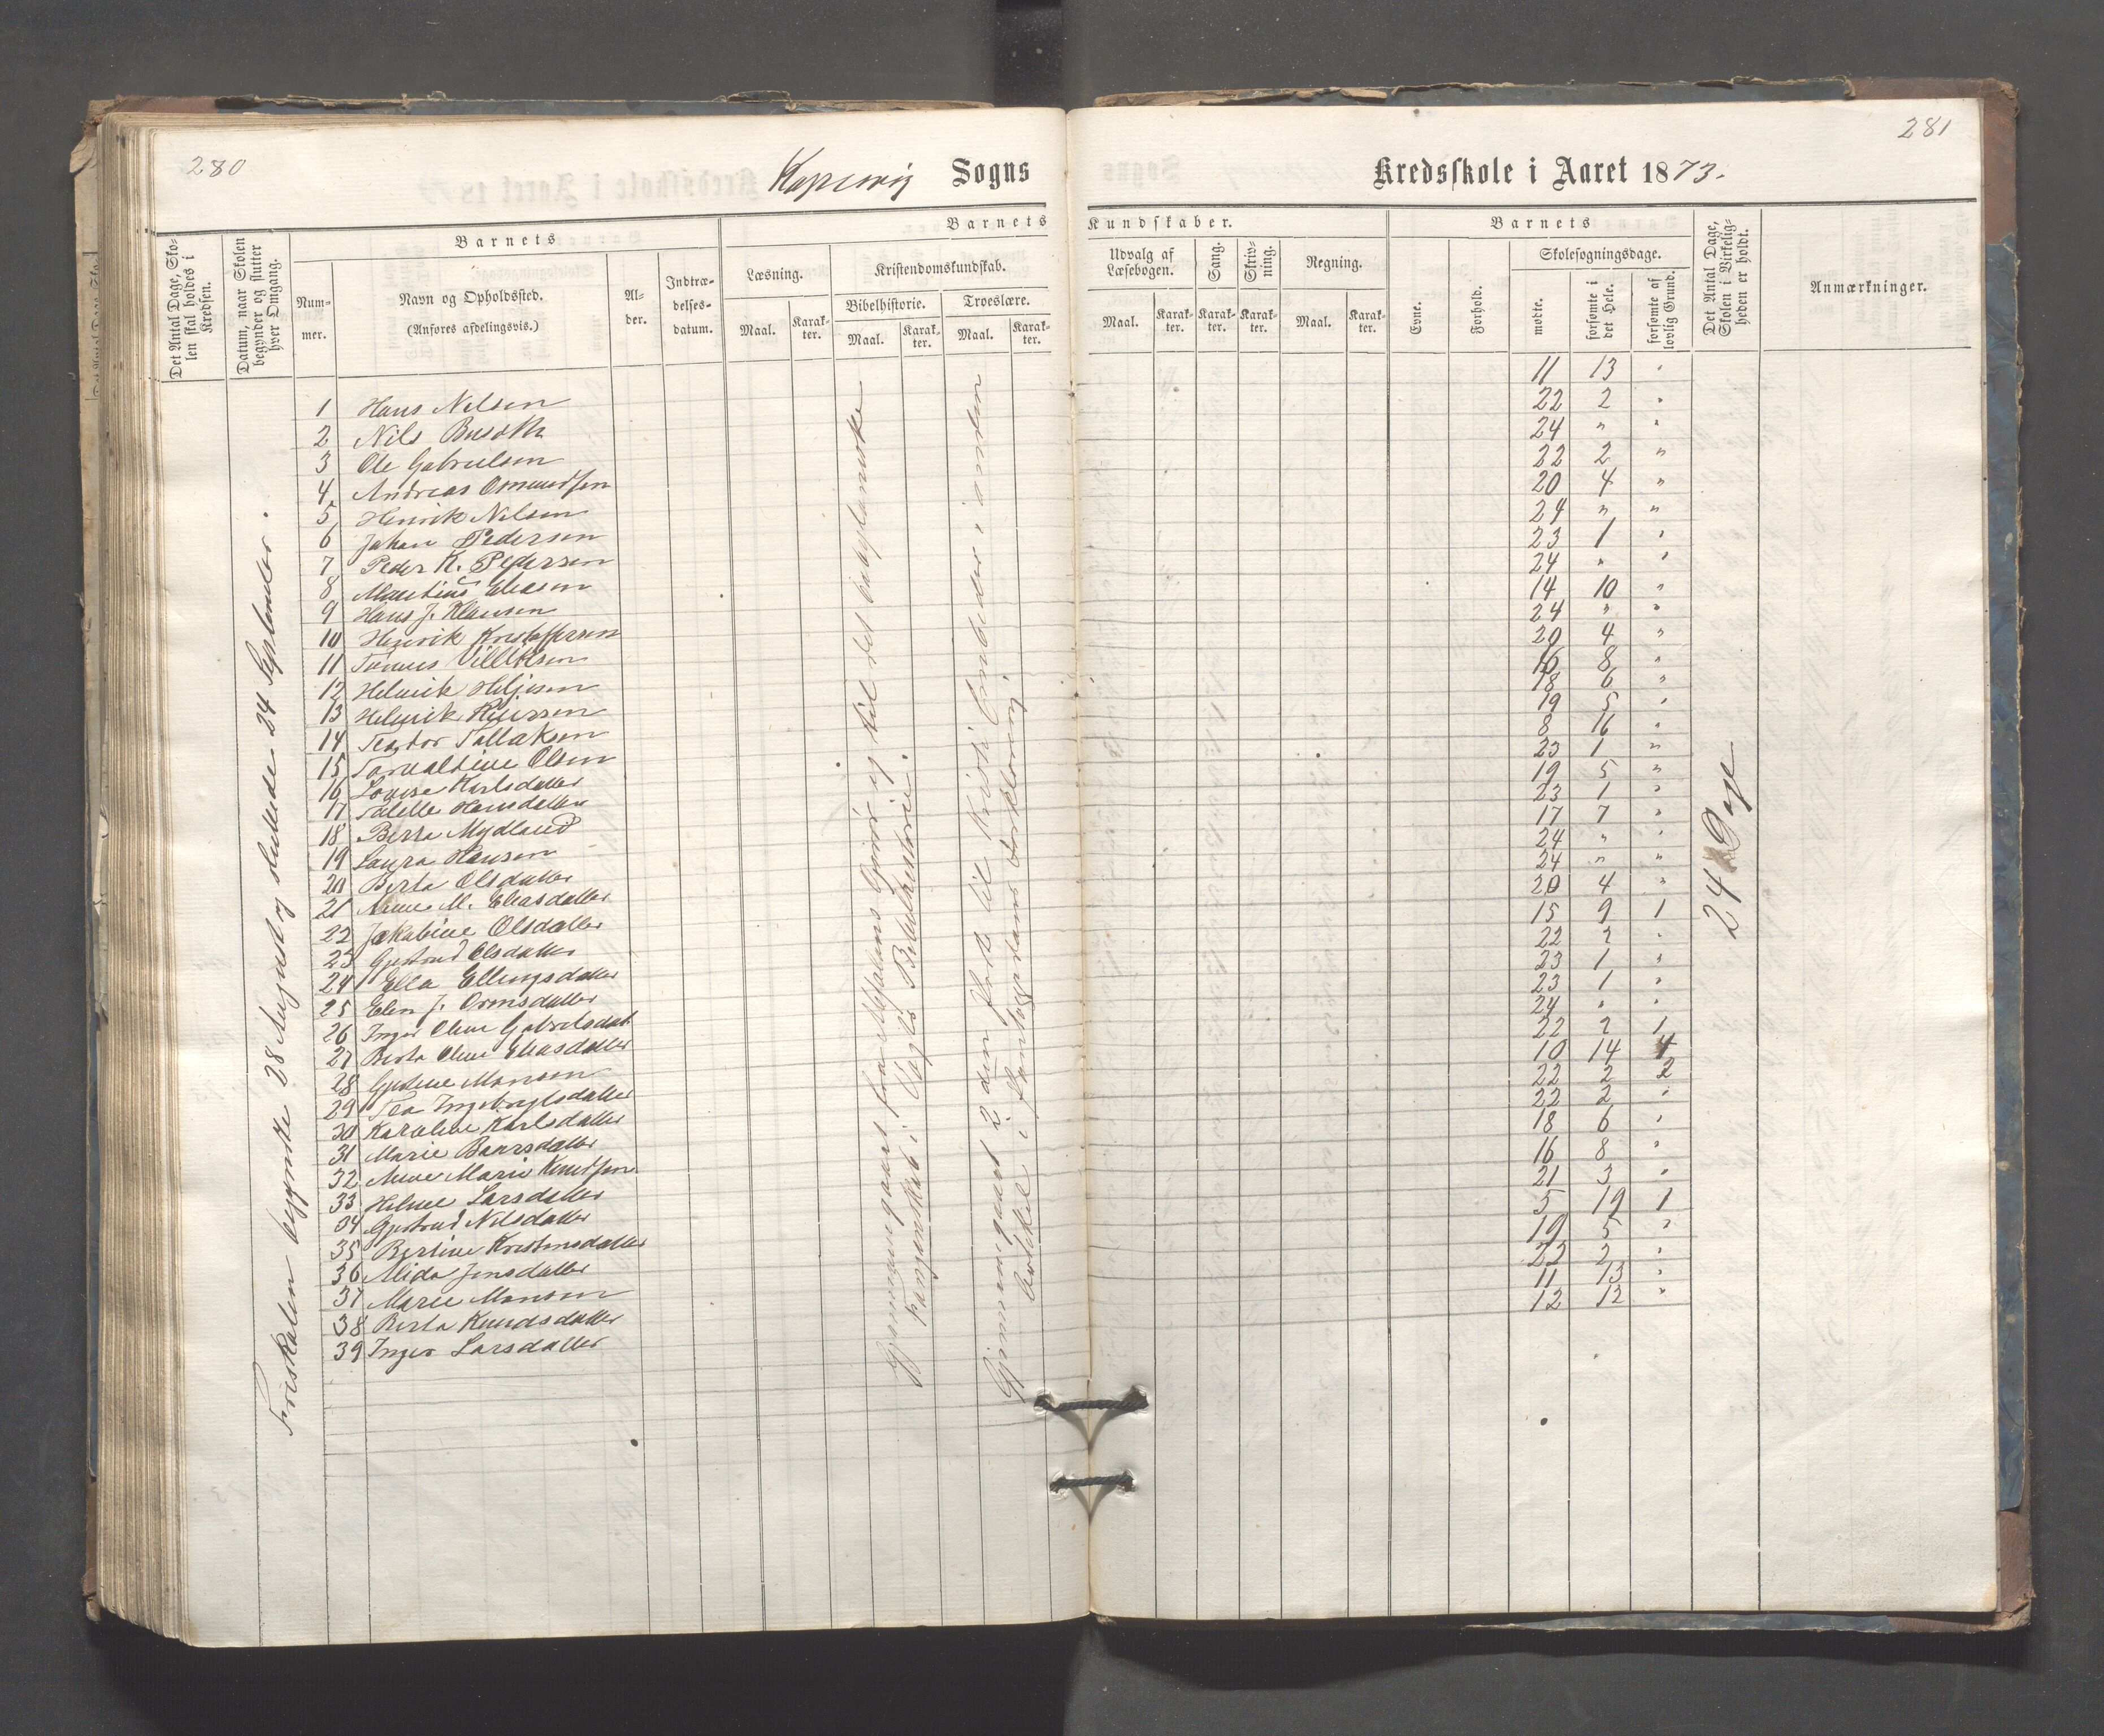 280
Kopervig Sogns
Barnets
Det Antal Dage, Sko-
len skal holdes i
Kredsen.
Datum, naar Skolen
begynder og slutter
hver Omgang.
Barnets
Num-
mer.
Navn og Opholdssted.
(Anføres afdelingsvis.)
Al-
der.
Indtræ-
delses-
datum.
Læsning.
Maal.
Karak-
ter.
Kristendomskundskab.
Bibelhistorie.
Maal.
Karak-
ter.
Troeslære.
Maal.
Karak-
ter.
Friskolen begyndte 28 August og sluttede 24 September.
1 Hans Nelsen
2 Nils
3 Ole Gabrielsen
4 Andreas Omundsen
5 Henrik Nelsen
6 Johan Pedersen
7 Peder K. Pedersen
8 Martinus Eliasen
9 Hans J. Klausen
10 Henrik Kristoffersen
11
12 Helmik Helgesen
13 Helmik
14 Teodor Tollaksen
15 Torvaldine Olsen
16 Lovise Karlsdatter
17 Hansdatter
18 Berta Mydland
19 Laura Hansen
20 Berta Olsdatter
21 Anne M. Eliasdatter
22 Jakobine Olsdatter
23 Gjertrud Olsdatter
24 Ella Ellingsdatter
25 Elen J. Ormsdatter
26 Inger Oline Gabrielsdat.
27 Berta Oline Eliasdatter
28 Gustine Monsen
29 Tea Ingebregtsdatter
30 Karoline Karlsdatter
31 Marie Baarsdatter
32 Anne Marie Knudsen
33 Helene Larsdatter
34 Gjertrud Nilsdatter
35 Bertine Kristensdatter
36 Alida Jensdatter
37 Marie Monsen
38 Berta Knudsdatter
39 Inger Larsdatter
Gjennemgaaet fra og til det babylaniske
Fangenskab i Vogts Bibelhistorie.
Gjennemgaaet 2 den Part til Kristi Embeder i anden
Artikel i Pontoppidans Forklaring
281
Kredsskole i Aaret 1873.
Kundskaber.
Udvalg af
Læsebogen.
Maal.
Karak-
ter.
Sang.
Karak-
ter.
Skriv-
ning.
Karak-
ter.
Regning.
Maal.
Karak-
ter.
Barnets
Evne.
Forhold.
Skolesøgningsdage.
mødte.
forsømte i
det Hele.
forsømte af
lovlig Grund.
Det Antal Dage,
Skolen i Virkelig-
heden er holdt.
Anmærkninger.
11 13 "
22 2 "
24 " "
22 2 "
20 4 "
24 " "
23 1 "
24 " "
14 10 "
24 " "
20 4 "
16 8 "
18 6 "
19 5 "
8 16 "
23 1 "
19 5 "
23 1 "
17 7 "
24 " "
24 " "
20 4 "
15 9 1
22 2 "
23 1 "
23 1 "
24 " "
22 2 1
10 14 4
22 2 2
22 2 "
18 6 "
16 8 "
21 3 "
5 19 1
19 5 "
22 2 "
11 13 "
12 12 "
24 Dage